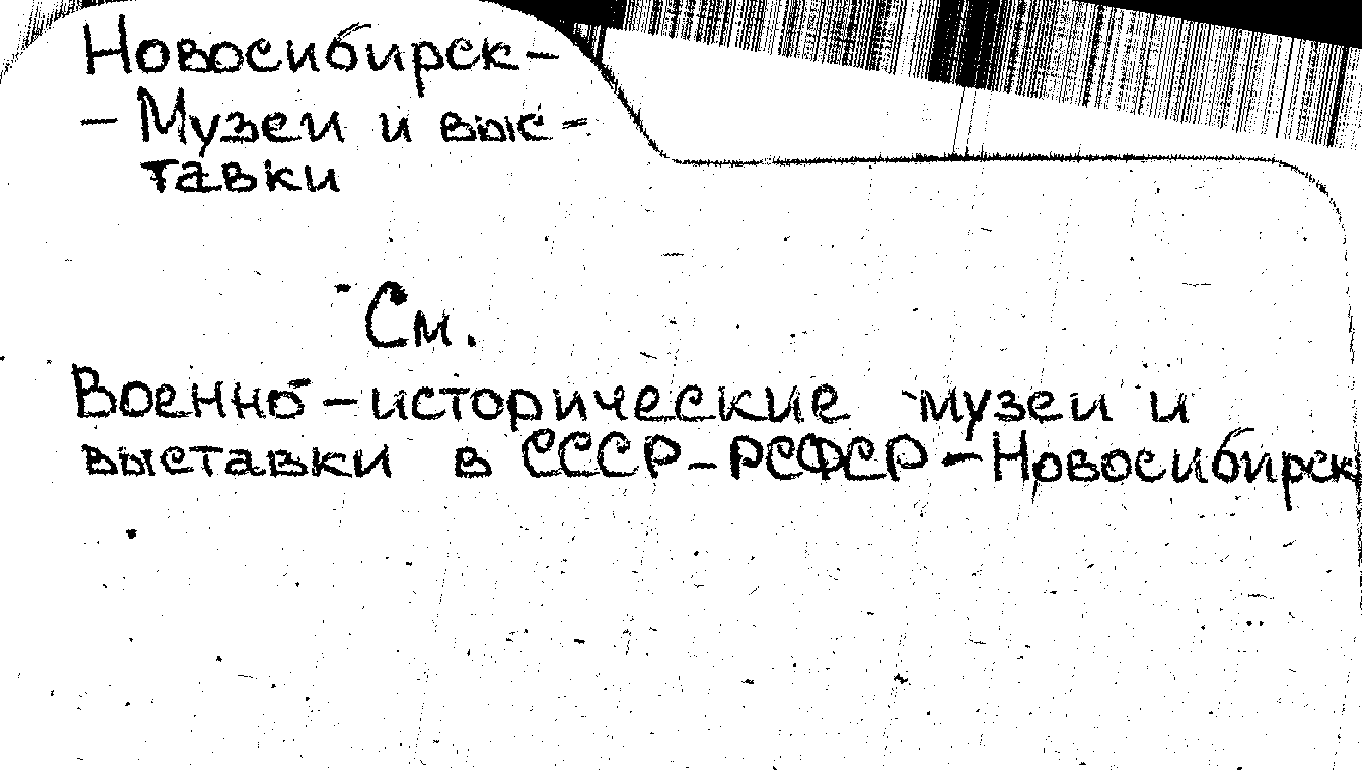 Новосибирск-
- Музеи и выс-
тавки
См.
Военно-исторические музеи и
выставки в СССР-РСФСР-Новосибирск